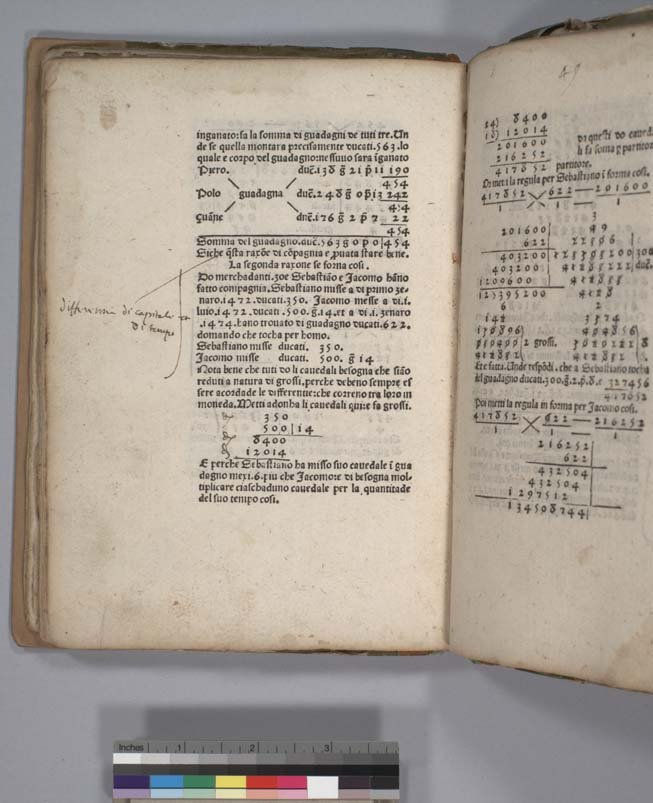 inganato: fa la somma di guadagni de tuti tre. Un
de se quella montara precisamente ducati. 563. lo
quale e corpo del guadagno: nessuno sara īganato
Piero. duc̄. 138 g̃ 21 p̄ 11 190
454
Polo guadagna duc̄. 248 g̃ 0 p̄ 13 242
454
Çuāne duc̄. 176 g̃ 2 p̄ 7 22
454
Somma del guadagno. duc̄. 563 g 0 p̄ 0 | 454
Siche q̄sta raxōe di cōpagnia e ꝓuata stare bene.
La segonda raxone se forna cosi.
Do merchadanti. zoe Sebastiāo e Jacomo hāno
fatto compagnia. Sebastiano misse a di primo ze-
naro. 1472. ducati. 350. Jacomo messe a di. i.
luio. 1472. ducati. 500. g̃. 14. et a di. i. zenaro
.1474. hano trouato di guadagno ducati. 622.
domando che tocha per homo.
Sebastiano misse ducati. 350.
Jacomo misse ducati. 500. g̃ 14
Nota bene che tuti do li cauedali besogna che siāo
reduti a natura di grossi. perche debeno sempre es
sere acordade le differentie: che correno tra loro in
moneda. Metti adonha li cauedali qui: e fa grossi.
350
500 | 14
8400
12014
E perche Sebastiano ha misso suo cauedale ī gua
dagno mexi. 6. piu che Jacomo: e di besogna mol-
tiplicare ciaschaduno cauedale per la quantitade
del suo tempo cosi.
di capitali
di tempo
49
24) 8400
18) 12014
201600
216252
417852 partitore.
di questi do caueda
li fa soma ꝑ partitore
Poi metti la regula per Sebastiano ī forma cosi.
417852 622 — 201600
1 1 1
201600
622
403200
403200
1209600
125395200
grossi.
duc̄.
Et e fatta. Unde respōdi. che a Sebastiano tocha
del guadagno ducati. 300. g̃. 2. p̄. 8. e 327456
417852
Poi metti la regula in forma per Jacomo cosi.
417852 622 — 216252
1 1 1
216252
622
432504
432504
1297512
134508744